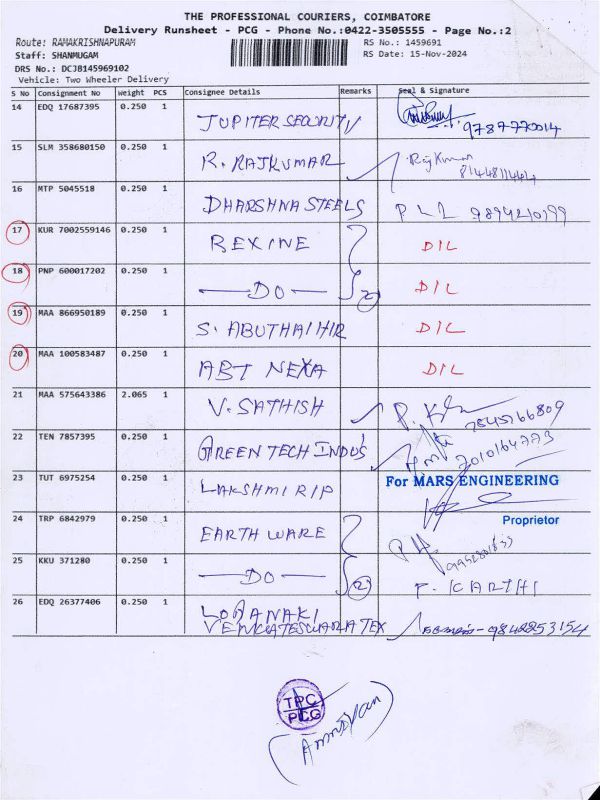 THE PROFESSIONAL COURIERS, COIMBATORE
Delivery Runsheet - PCG - Phone No.:0422-3505555 - Page No.:2
Route: RAMAKRISHNAPURAM
RS No.: 1459691
Staff: SHANMUGAM
RS Date: 15-Nov-2024
DRS No.: DCJB145969102
Vehicle: Two Wheeler Delivery
S No Consignment No Weight PCS Consignee Details Remarks Seal & Signature
14 EDQ 17687395 0.250 1 JUPITER SECURITY 9787770014
15 SLM 358680150 0.250 1 R. RAJKUMAR Raj Kumar
16 MTP 5045518 0.250 1 DHARSHNA STEELS
17 KUR 7002559146 0.250 1 REXINE D/L
18 PNP 600017202 0.250 1 DO 2 D/L
19 MAA 866950189 0.250 1 S. ABUTHAIHIR D/L
20 MAA 100583487 0.250 1 ABT NEXA D/L
21 MAA 575643386 2.065 1 V. SATHISH 7845766809
22 TEN 7857395 0.250 1 GREEN TECH INDUS 7010164773
23 TUT 6975254 0.250 1 LAKSHMI RIP For MARS ENGINEERING
Proprietor
24 TRP 6842979 0.250 1 EARTH WARE
25 KKU 371280 0.250 1 DO 2 P. KARTHI
26 EDQ 26377406 0.250 1 LOGANAKI
VENKATESWARA TEX 9842253154
TPC
PCG